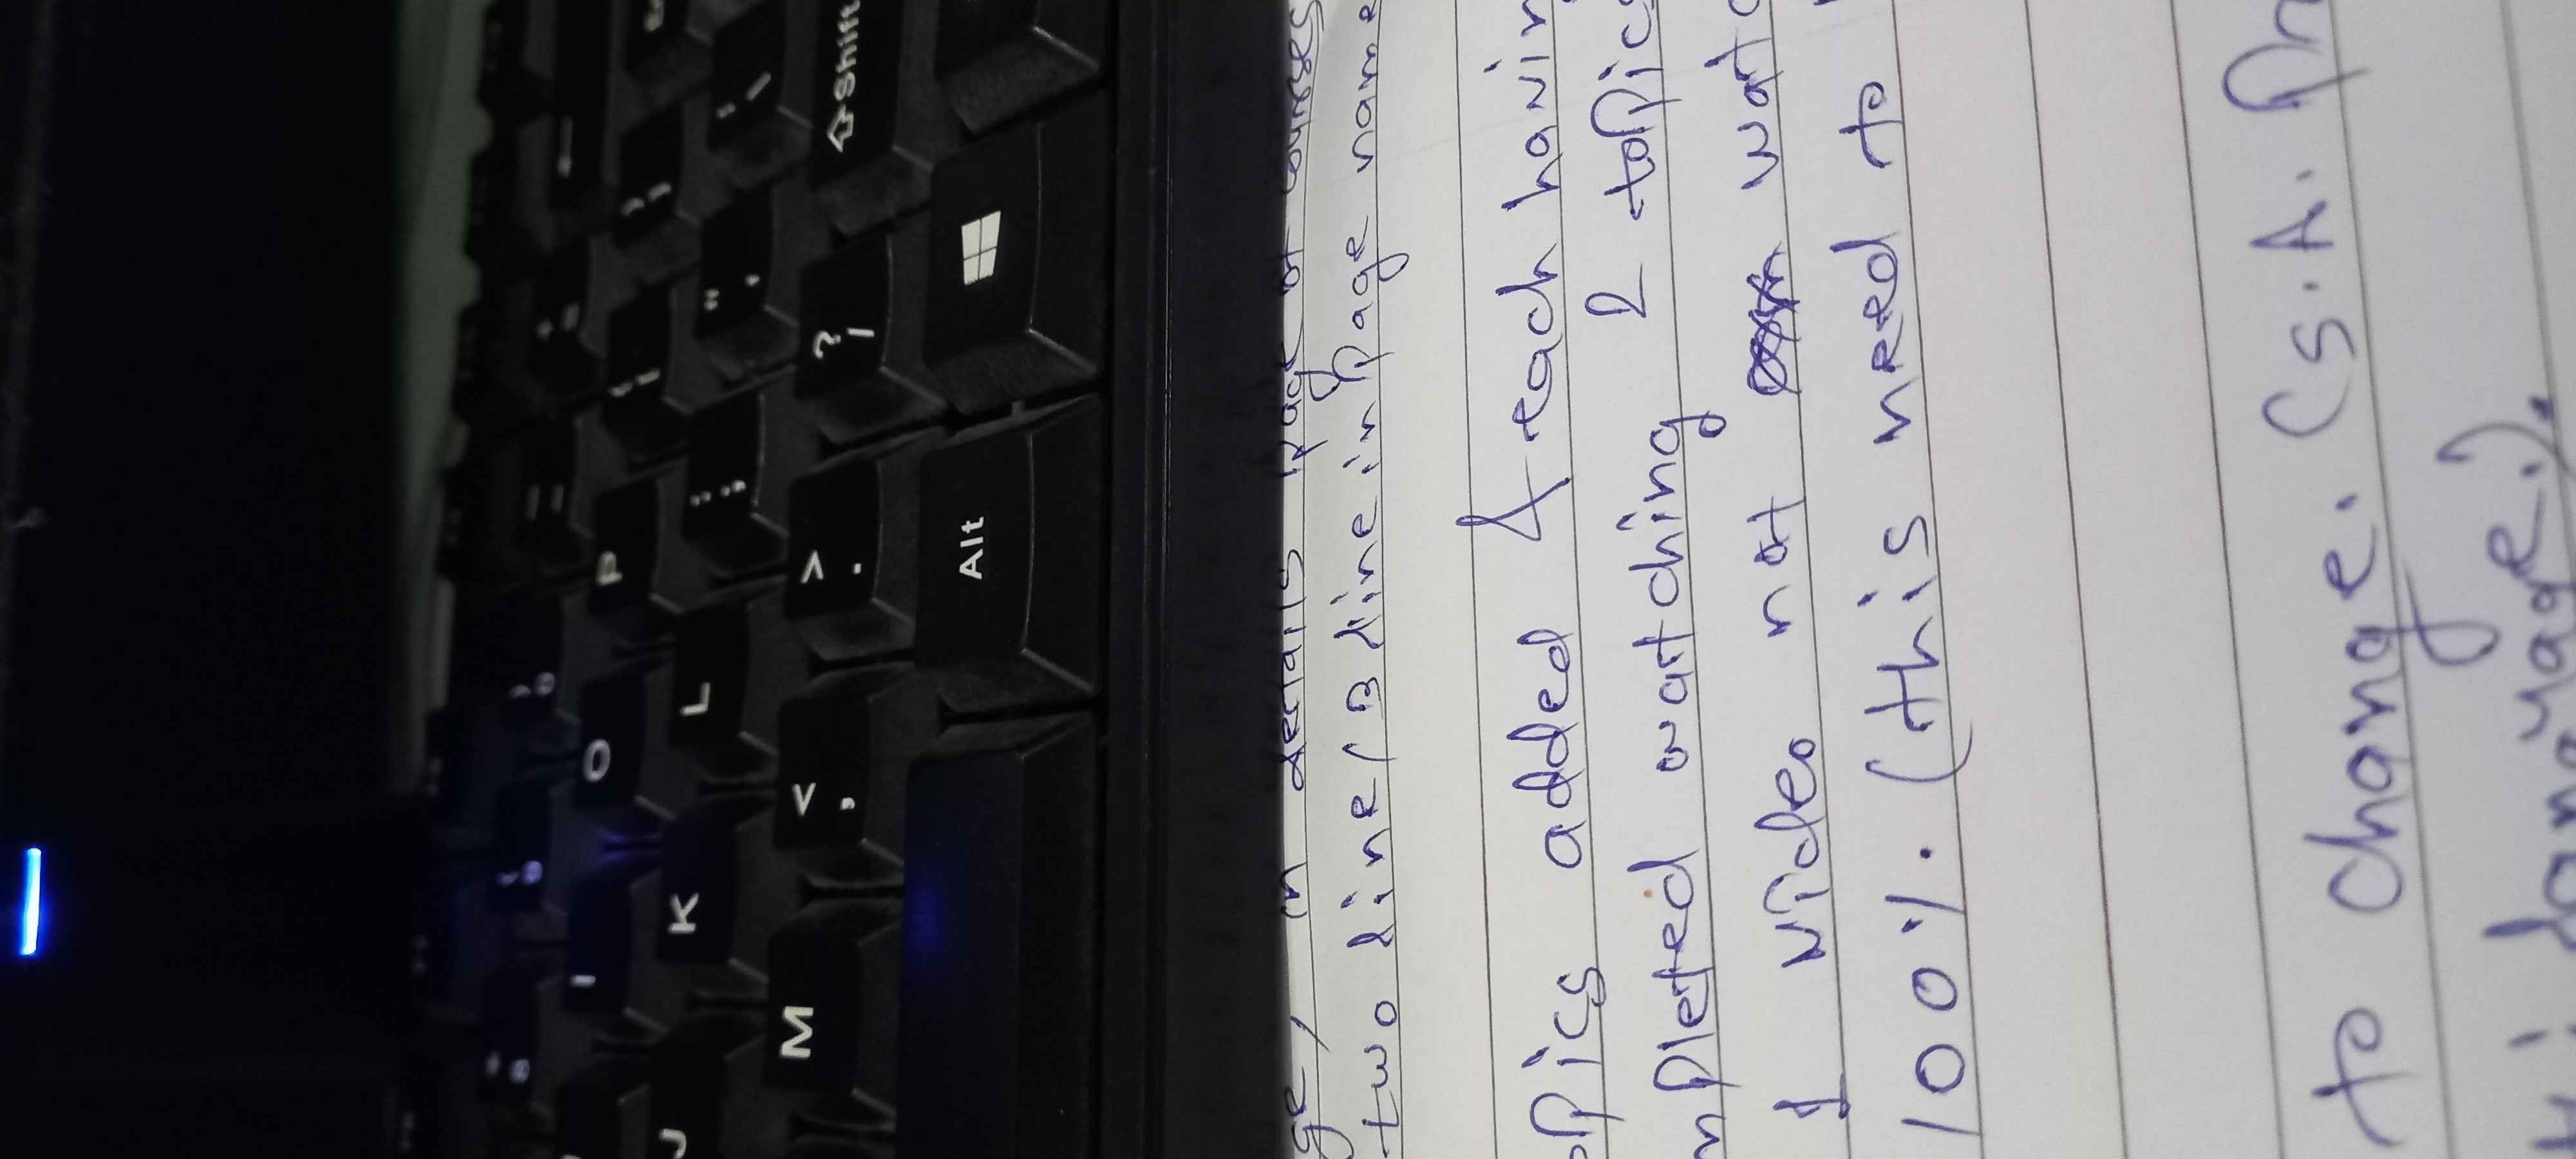 I O P
J K L ; "
M < , > . ? / Shift
Alt
ge, in details page of courses
two line / 3 line in Page name
opics added & each havin
mpleted watching 2 topics
1 video not watc
100%. (this need to
to change. (S.A. Pr
language.).